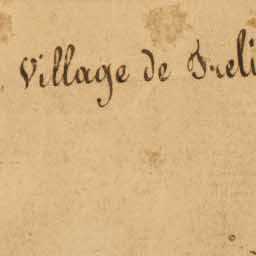 Village de Freli